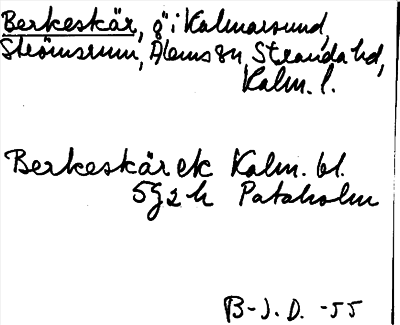 Berkeskär, ö i Kalmarsund,
Strömsrum, Ålems sn, Stranda hd,
Kalm. l.
Berkeskär ek Kalm. bl.
5G2h Pataholm
B-J.D. -55